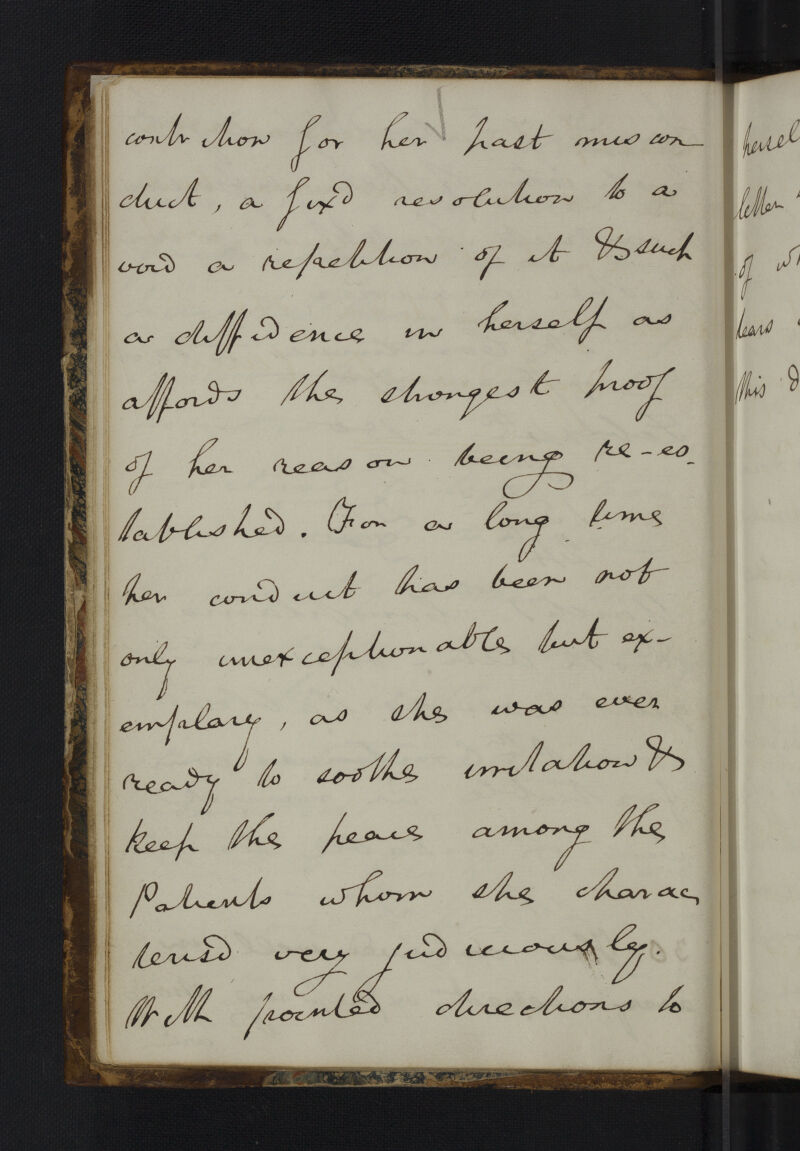 contrition for her past miscon
duct, a fix'd resolution to a
void a repetition of it & such
a diffidence in herself as
affords the strongest proof
of her reason being re-es-
tablished. For a long time
her conduct has been not
only unexceptionable but ex-
emplary, as she was ever
ready to soothe irritation &
keep the peace among the
Patients whom she charac
teris'd very judiciously.
With pointed directions to
hersel
letter
of wh
tears
this